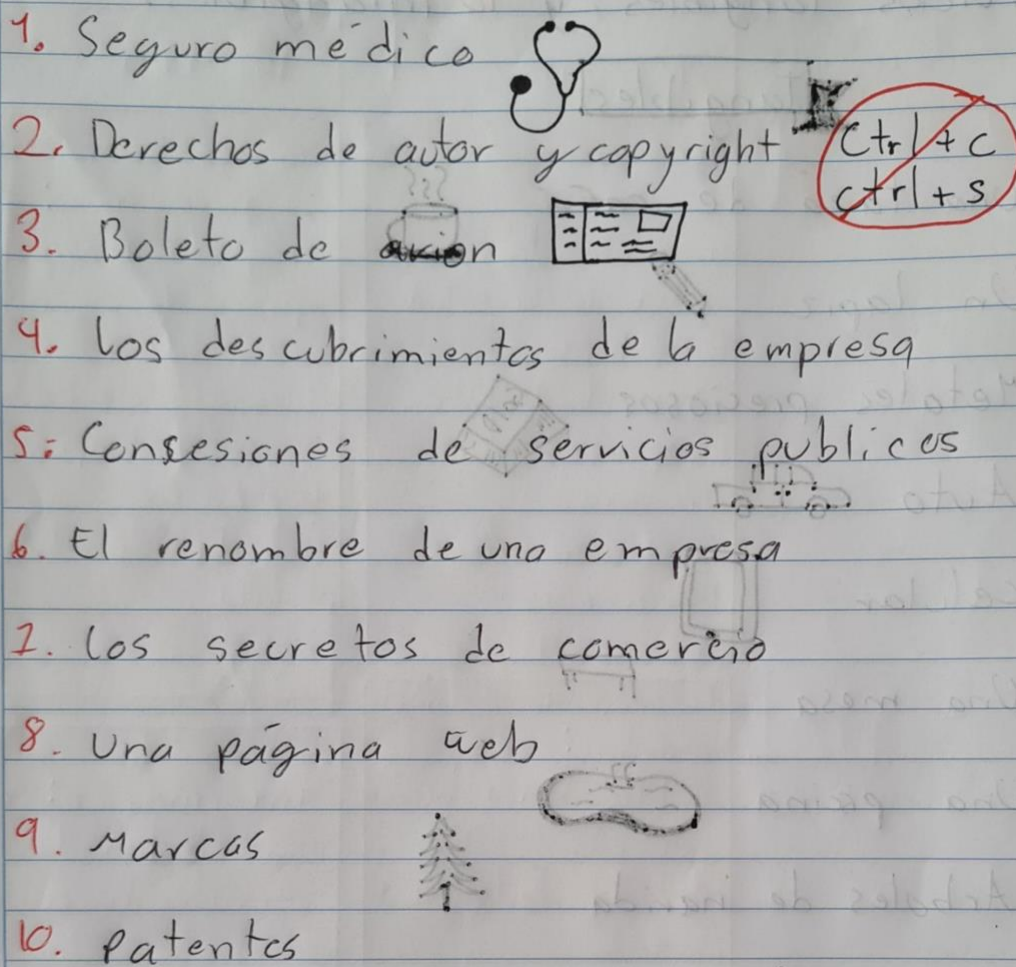 1. Seguro médico
2. Derechos de autor y copyright
ctrl + c
ctrl + s
3. Boleto de avion
4. los descubrimientos de la empresa
5. Consesiones de servicios publicos
6. El renombre de una empresa
7. los secretos de comercio
8. Una página web
9. Marcas
10. patentes